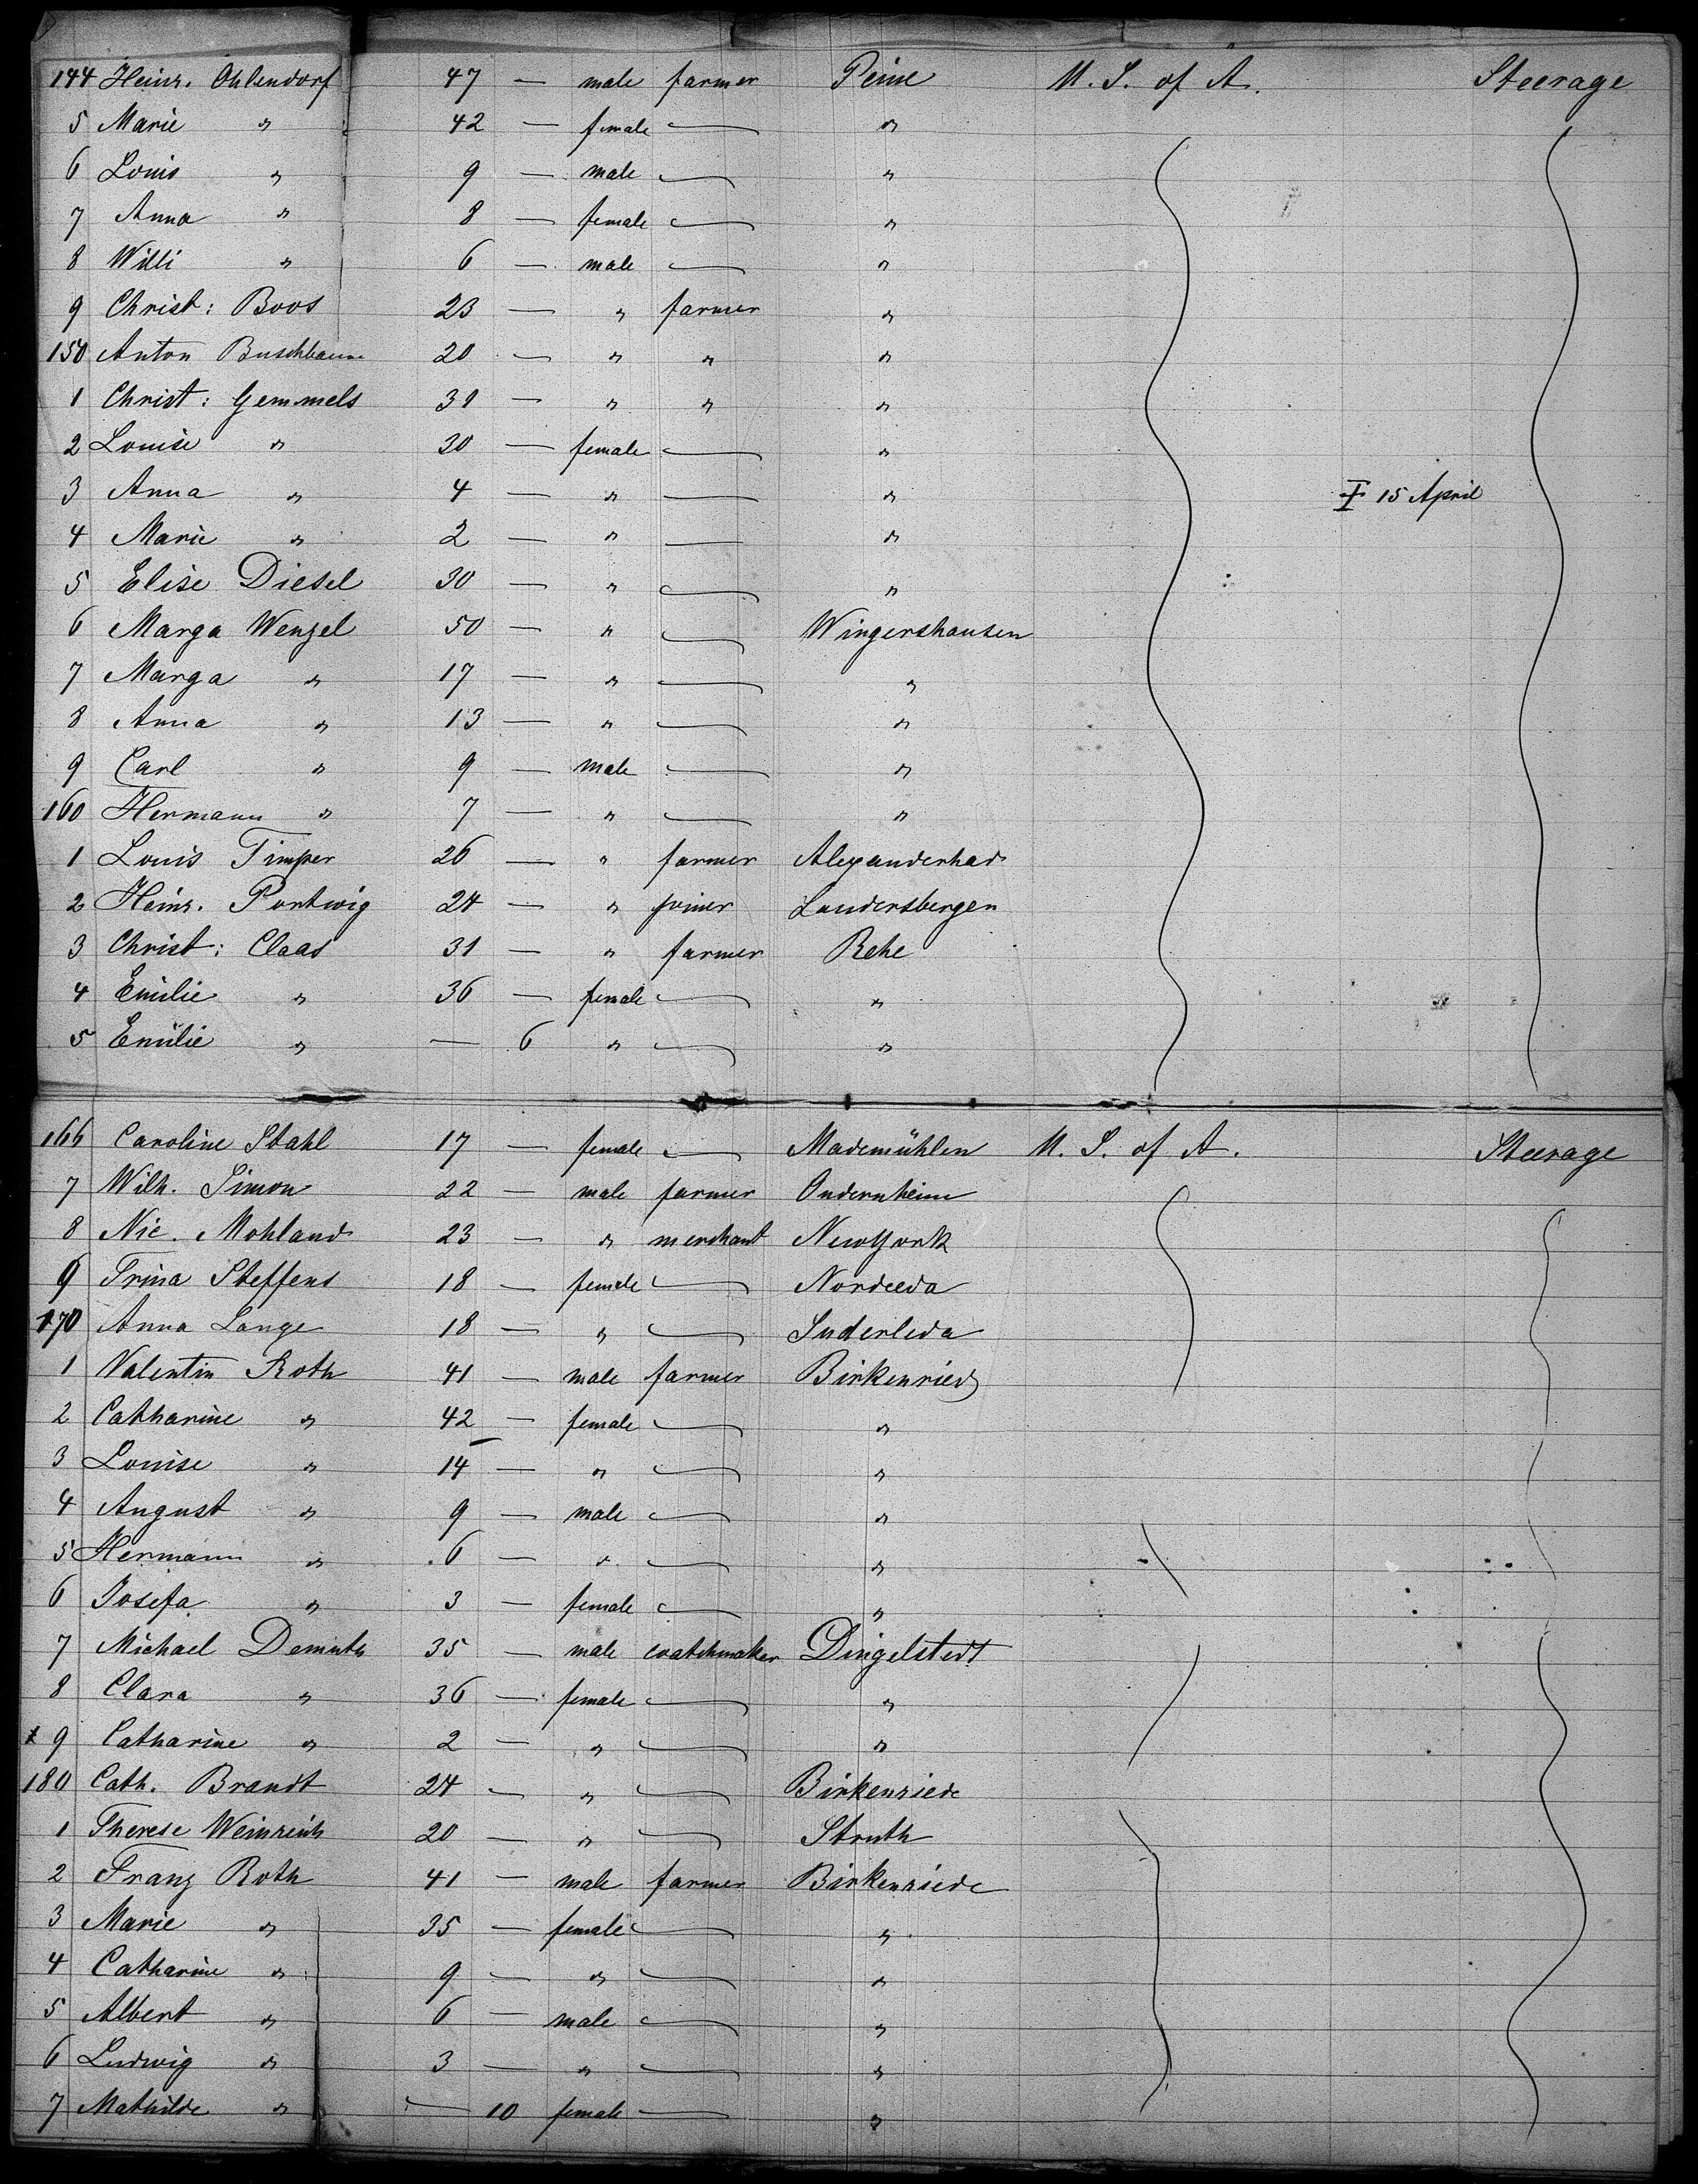 144 Heinr. Ohlendorf 47 — male farmer Peine U. S. of A. Steerage
5 Marie " 42 — female — "
6 Louis " 9 — male — "
7 Anna " 8 — female — "
8 Willi " 6 — male — "
9 Christ: Boos 23 — " farmer "
150 Anton Buschbaum 20 — " " "
1 Christ: Gemmels 31 — " " "
2 Louise " 30 — female — "
3 Anna " 4 — " — " 15 April
4 Marie " 2 — " — "
5 Elise Diesel 30 — " — "
6 Marga Wenzel 50 — " — Wingershausen
7 Marga " 17 — " — "
8 Anna " 13 — " — "
9 Carl " 9 — male — "
160 Hermann " 7 — " — "
1 Louis Timper 26 — " farmer Alexanderhad
2 Heinr. Portwig 24 — " joiner Landersbergen
3 Christ: Claas 31 — " farmer Rehe
4 Emilie " 36 — female — "
5 Emilie " — 6 " — "
166 Caroline Stahl 17 — female — Mademühlen U. S. of A. Steerage
7 Wilh. Simon 22 — male farmer Ondernheim
8 Nic. Mohland 23 — " merchant NewYork
9 Trina Steffens 18 — female — Nordleda
170 Anna Lange 18 — " — Suderleda
1 Valentin Roth 41 — male farmer Birkenried
2 Catharine " 42 — female — "
3 Louise " 14 — " — "
4 August " 9 — male — "
5 Hermann " 6 — " — "
6 Josefa " 3 — female — "
7 Michael Demuth 35 — male coatchmaker Dingelstedt
8 Clara " 36 — female — "
x 9 Catharine " 2 — " — "
180 Cath. Brandt 24 — " — Birkenriede
1 Therese Weinreich 20 — " — Struth
2 Franz Roth 41 — male farmer Birkenriede
3 Marie " 35 — female — "
4 Catharine " 9 — " — "
5 Albert " 6 — male — "
6 Ludwig " 3 — " — "
7 Mathilde " — 10 female — "